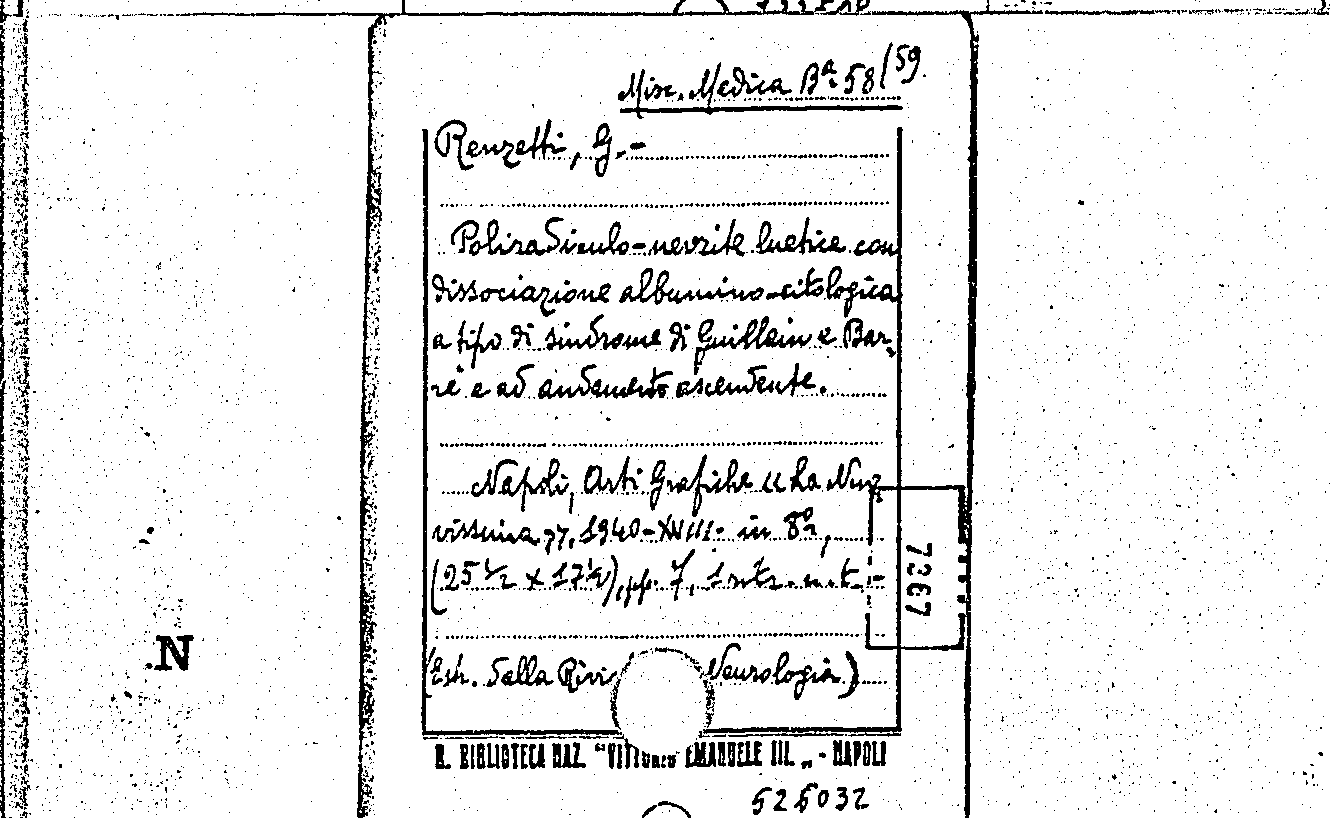 Misc. Medica Bª 58/59.
Renzetti, G.-
Poliradiculo-nevrite luetica con
dissociazione albumino-citologica
a tipo di sindrome di Guillain e Bar-
ré e ad andamento ascendente.
Napoli, Arti Grafiche "La Nuo
vissima", 1940-XVIII- in 8º,
(25 ½ x 17 ½), pp. 7, 1
7367
(Estr. dalla Rivi Neurologia)
R. BIBLIOTECA NAZ. "VITTORIO EMANUELE III. „ - NAPOLI
525032
.N